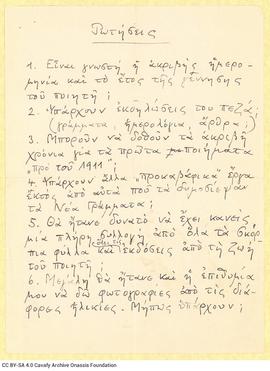 Ρωτήσεις
1. Εἶναι γνωστή ἡ ἀκριβής ἡμερο-
μηνία καὶ τὸ ἔτος τῆς γέννησης
τοῦ ποιητῆ ;
2. Ὑπάρχουν ἐκδηλώσεις του πεζά;
(γράμματα, ἡμερολόγια, ἄρθρα;)
3. Μποροῦν νὰ δοθοῦν τὰ ἀκριβῆ
χρόνια γιὰ τὰ πρῶτα ποιήματα
"πρὸ τοῦ 1911" ;
4. Ὑπάρχουν ἄλλα "προκαβάφικα" ἔργα
ἐκτὸς ἀπὸ αὐτὰ ποὺ τὰ δημοσίεψαν
τὰ Νέα Γράμματα ;
5. Θὰ ἤτανε δυνατὸ νὰ ἔχει κανεὶς
μία πλήρη συλλογὴ ἀπὸ ὅλα τὰ σκόρ-
πια φύλλα καὶ ἐκδόσεις ἀπὸ τὴ ζωὴ
τοῦ ποιητῆ ;
6. Μεγάλη θὰ ἤτανε καὶ ἡ ἐπιθυμία
μου νὰ δῶ φωτογραφίες ἀπὸ τὶς διά-
φορες ἡλικίες. Μήπως ὑπάρχουν ;
CC BY-SA 4.0 Cavafy Archive Onassis Foundation